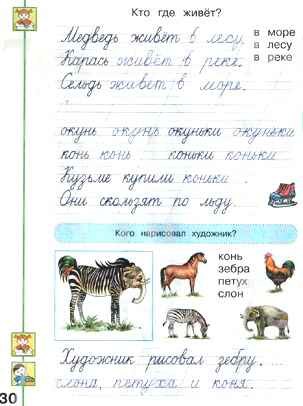 Кто где живёт?
Медведь живёт в лесу.
в море
Карась живёт в реке.
в лесу
Сельдь живёт в море.
в реке
окунь окунь окуньки окуньки
конь конь коньки коньки
Кузьме купили коньки.
Они скользят по льду.
Кого нарисовал художник?
конь
зебра
петух
слон
Художник рисовал зебру, ...
слона, петуха и коня.
30